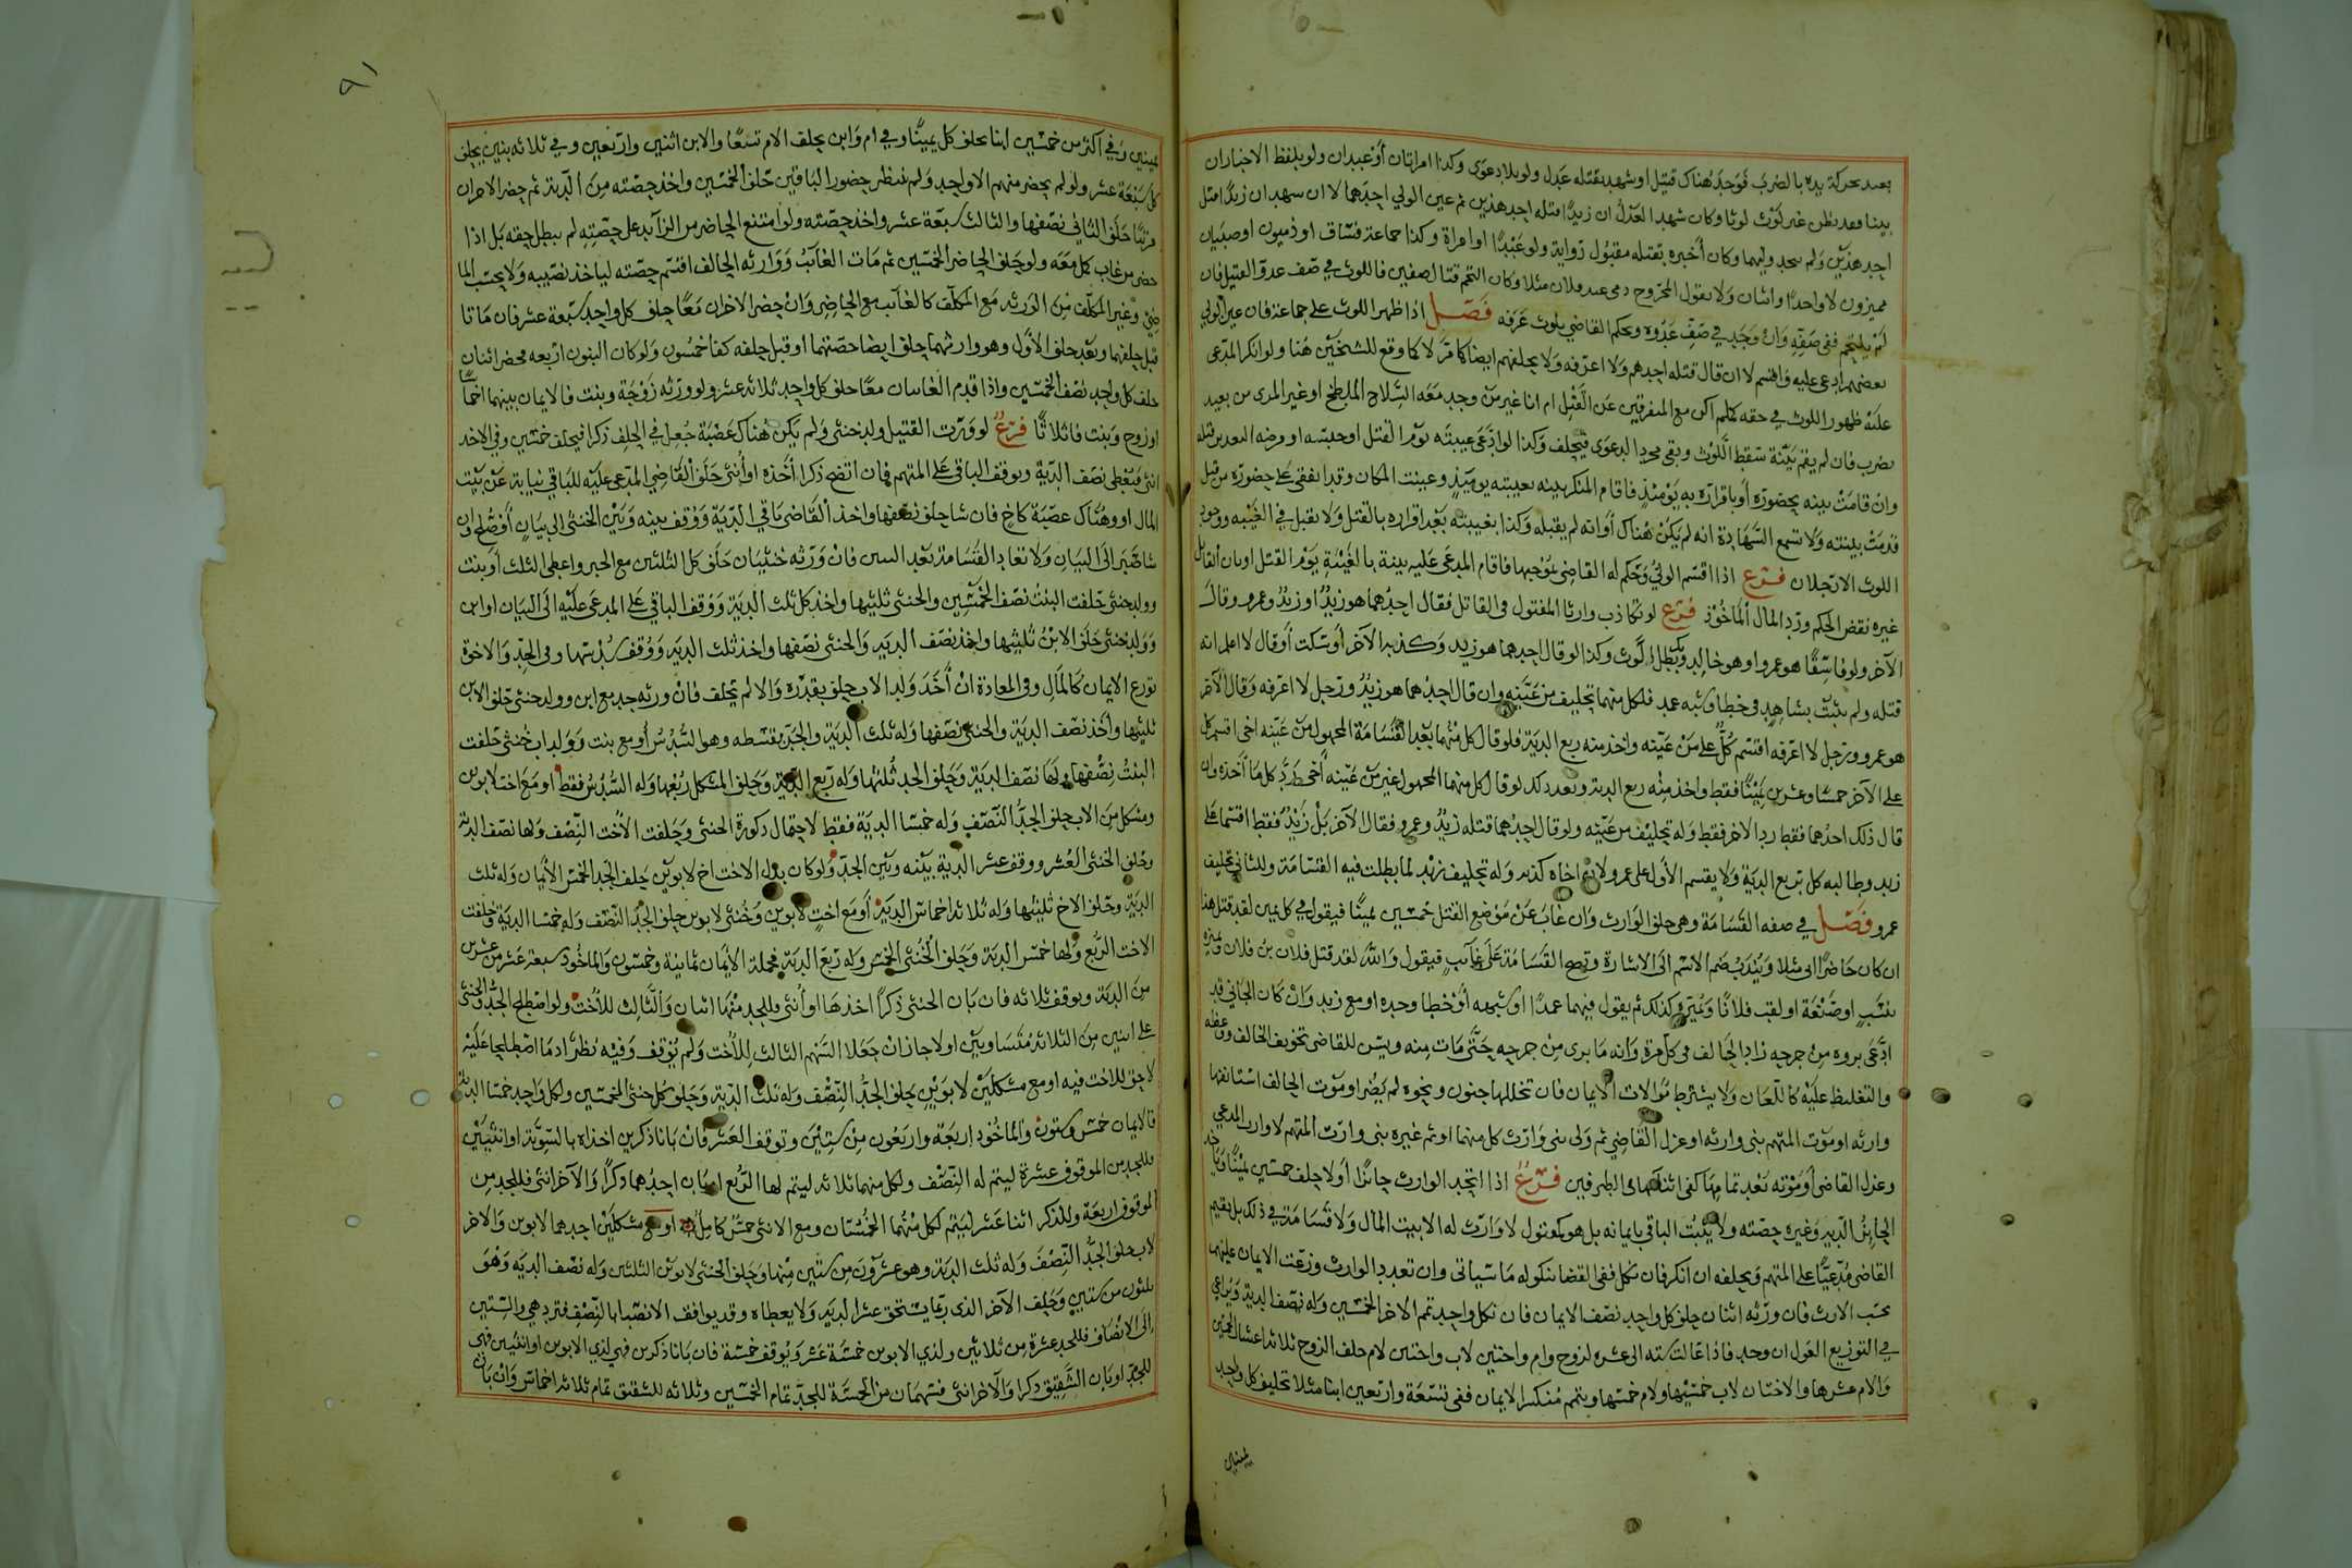 بعد تحركة يده بالضرب فوجد هناك قتيل او شهد بقتله عدل ولو بلا دعوى وكذا امراتان أو عبدان ولو بلفظ الاخبار ان
بينا فعدنظر غير لوث لوثا وكان شهد العدل ان زيدا قتله احد هذين ثم عين الولي احدهما لا ان شهد ان زيدا قتل
احد هذين ولم وليهما وكان أخبره بقتله مقبول رواية ولو عبدا او امراة وكذا جماعة فساق او ذميون او صبيان
مميزون لا واحدا واثنان ولا بقول المجروح دمى عند فلان مثلا وكان التحم قتال صفين فاللوث في صف عدو القتيل فان
لم يلتحم ففى صفه وان وجد في صف عدوه ويحكم القاضى بلوث عرفه فصل اذا ظهر اللوث على جماعة فان عين الولي
بعضهم ادعى عليه واقسم لا ان قال قتله احدهم ولا اعرفه ولا يحلفهم ايضا كما مر لا كما وقع للشيخين هنا ولو انكر المدعى
عليه ظهور اللوث في حقه كلم اكن مع المتفرقين عن القتل ام انا غير من وجد معه السلاح الملطخ او غير المرى من بعيد
يضرب فان لم يقم بينة سقط اللوث وبقى مجرد الدعوى فيحلف وكذا لو ادعى غيبته يوم القتل او حبسه او مرضه
وان قامت بينه بحضوره أو باقراره به يومئذ فاقام المنكر بينه بغيبته يومئذ وعينت المكان وقد اتفقى على حضوره من قبل
قدمت بينته ولا تسمع الشهادة انه لم يكن هناك أو انه لم يقبله وكذا بغيبته بعد اقراره بالقتل ولا يقبل في الغيبه ووجود
اللوث الا رجلان فرع اذا اقسم الولي وحكم له القاضى بموجبها فاقام المدعى عليه بينة بالغيبة يوم القتل او بان القاتل
غيره نقض الحكم ورد المال المأخوذ فرع لو تكاذب وارثا المقتول فى القاتل فقال احدهما هو زيد او زيد وعمرو وقال
الآخر ولو فاسقا هو عمرو او هو خالد وبكر بطل لوث وكذا لو قال احدهما هو زيد وكذبه الآخر أو سكت أو قال لا اعلم انه
قتله ولم يثبت بشاهد في خطا وشبه عمد فلكل منهما تحليف من عينه وان قال احدهما هو زيد ورجل لا اعرفه وقال الآخر
هو عمرو ورجل لا اعرفه اقسم كل على من عينه واخذ منه ربع الدية فلو قال كل منهما بعد القسامة المجهول من عينه اخى اقسم كل
على الآخر خمسا وعشرين يمينا فقط واخذ منه ربع الدية وبعد ذلك لو قال كل منهما المجهول غير من عينه أخى رد كل ما أخذه وان
قال ذلك احدهما فقط رد الاخر فقط وله تحليف من عينه ولو قال احدهما قتله زيد وعمرو فقال الآخر بل زيد فقط اقتسما على
زيد وطالبه كل بربع الدية ولا يقسم الأول على عمرو لان اخاه كذبه وله تحليف زيد لما بطلت فيه القسامة وللثانى تحليف
عمرو فصل في صفه القسامة وهى حلف الوارث وان غاب عن موضع القتل خمسين يمينا فيقول في كل يمين لقد قتل هذا
ان كان حاضرا ابى مثلا ويندب ضم الاسم الى الاشارة وتصح القسامة على غائب فيقول والله لقد قتل فلان بن فلان ويميزه
بنسب او صنعة او لقب فلانا ويميزه كذلك ثم يقول فيهما عمدا او شبهه أو خطا وحده او مع زيد وان كان الجانى قد
ادعى بروه من جرحه زاد الحالف فى كل مرة وانه ما برى من جرحه حتى مات منه ويسن للقاضى تخويف الحالف ووعظه
والتغليظ عليه كاللعان ولا يشترط موالات الايمان فان تخللها جنون ونحوه لم يضر او موت الحالف استانفها
وارثه او موت المتهم بنى وارثه او عزل القاضي ثم ولى بنى وارث كل منهما او ثم غيره بنى وارث المتهم لا وارث المدعي
وعزل القاضى أو موته بعد تمامها كفى اثناءها الطرفين فرع اذا اتحد الوارث جائزا أو لا حلف خمسين يمينا وياخذ
الجائز الدية وغيره حصته ولا يثبت الباقي بايمانه بل هو كمقتول لا وارث له الا بيت المال ولا قسامة في ذلك بل يقيم
القاضى مدعيا على المتهم ويحلفه ان انكر فان نكل ففى القضا بنكوله ما سياتى وان تعدد الوارث وزعت الايمان عليهم
بحسب الارث فان ورثه اثنان حلف كل واحد نصف الايمان فان نكل واحد تمم الاخر الخمسين وله نصف الدية ويراعي
في التوزيع العول ان وجد فاذا عالت ستة الى عشره لزوج وام واختين لاب واختين لام حلف الزوج ثلاثة اعشار الخمسين
والام عشرها والاختان لاب خمسيها ولام خمسها ويتمم منكسر الايمان ففى تسعة واربعين ابنا مثلا تحليف كل واحد
يمينين
٩١
يمينين وفي اكثر من خمسين ابنا يحلف كل يمينا وفي ام وابن يحلف الام تسعا والابن اثنين واربعين وفي ثلاثه بنين يحلف
كل سبعة عشر ولو لم يحضر منهم الا واحد ولم ينتظر حضور الباقين حلف الخمسين واخذ حصته من الدية ثم حضر الاخران
مرتبا حلف الثاني نصفها والثالث سبعة عشر واخذ حصته ولو امتنع الحاضر من الزائد على حصته لم يبطل حقه بل اذا
حضر من غاب كمل معه ولو حلف الحاضر الخمسين ثم مات الغائب ووارثه الحالف اقسم حصته لياخذ نصيبه ولا يحسب الما
ضي وغير المكلف من الورثه مع المكلف كالغائب مع الحاضر وان حضر الاخران معا حلف كل واحد سبعة عشر فان ماتا
قبل حلفهما وبعد حلف الأول وهو وارثهما حلف ايضا حصتهما او قبل حلفه كفا خمسون ولو كان البنون اربعه فحضر اثنان
حلف كل واحد نصف الخمسين واذا قدم الغائبان معا حلف كل واحد ثلاثة عشر ولو ورثه زوجة وبنت فالايمان بينهما اخماسا
او زوج وبنت فاثلاثا فرع لو ورث القتيل ولد خنثى ولم يكن هناك عصبة جعل في الحلف ذكرا فيحلف خمسين وفي الاخذ
انثى فيعطى نصف الدية ويوقف الباقى على المتهم فان اتضح ذكرا أخذه او أنثى حلف القاضي المدعى عليه للباقي نيابة عن بيت
المال او وهناك عصبة كاخ فان شا حلف نصفها واخذ القاضى باقي الدية ووقف بينه وبين الخنثى الى بيان أو صلح وان
شا صبر الى البيان ولا تعاد القسامة بعد البين فان ورثه خنثيان حلف كل الثلثين مع الجبر واعطى الثلث أو بنت
وولد خنثى حلفت البنت نصف الخمسين والخنثى ثلثيها واخذ كل ثلث الدية ووقف الباقي على المدعى عليه الى البيان او ابن
وولد خنثى حلف الابن ثلثيها واخذ نصف الدية والخنثى نصفها واخذ ثلث الدية ووقف سدسها وفى الجد والاخوة
توزع الايمان كالمال وفى المعادة ان أخذ ولد الاب حلف بقدره والا لم يحلف فان ورثه جد مع ابن وولد خنثى حلف الابن
ثلثيها وأخذ نصف الدية والخنثى نصفها وله ثلث الدية والجد بقسطه وهو السدس أو مع بنت وولد اب خنثى حلفت
البنت نصفها ولها نصف الدية وحلف الجد ثلثها وله ربع الدية وحلف المشكل ربعها وله السدس فقط او مع اخت لابوين
ومشكل من الاب حلف الجد النصف وله خمسا الدية فقط لاحتمال ذكورة الخنثى وحلفت الأخت النصف ولها نصف الدية
وحلف الخنثى العشر ووقف عشر الدية بينه وبين الجد ولو كان بدل الاخت اخ لابوين حلف الجد الخمس الأيمان وله ثلث
الدية وحلف الاخ ثلثيها وله ثلاثة اخماس الدية أو مع اخت لابوين وخنثى لابوين حلف الجد النصف وله خمسا الدية وحلفت
الاخت الربع ولها خمس الدية وحلف الخنثى الخمس وله ربع الدية فجملة الأيمان ثمانية وخمسون والماخوذ سبعة عشر من عشرين
من الدية ويوقف ثلاثه فان بان الخنثى ذكرا اخذها او أنثى فللجد منها اثنان والثالث للأخت ولو اصطلح الجد والخنثى
على اثنين من الثلاثة متساويين او لا جاز ان جعلا السهم الثالث للأخت ولم يوقف وفيه نظر اد ما اصطلحا عليه
لا حق للاخت فيه او مع مشكلين لابوين يحلف الجد النصف وله ثلث الدية وحلف كل خنثى الخمسين ولكل واحد خمسا الدية
فالايمان خمس وستون والماخوذ اربعة واربعون من ستين وتوقف العشر فان بانا ذكرين اخذاه بالسوية او انثيين
فللجد من الموقوف عشرة ليتم له النصف ولكل منهما ثلاثه ليتم لها الربع او بان احدهما ذكرا والآخر انثى فللجد من
الموقوف اربعة وللذكر اثنا عشر ليتم لكل منهما الخمسان ومع الانثى خمس كامل او مع مشكلين احدهما لابوين والاخر
لاب حلف الجد النصف وله ثلث الدية وهو عشرون من ستين منها وحلف الخنثى لابوين الثلثين وله نصف الدية وهو
ثلثون من ستين وحلف الآخر الذى ربما يستحق عشر الدية ولا يعطاه وقد يوافق الانصبا بالنصف فترد هي والستين
الى الانصاف فللجد عشرة من ثلاثين ولذي الابوين خمسة عشر ويوقف خمسة فان بانا ذكرين فهي لذي الابوين او انثيين فهي
للجد او بان الشقيق ذكرا والآخر انثى فسهمان من الخمسة للجد تمام الخمسين وثلاثه للشقيق تمام ثلاثة اخماس وان بان